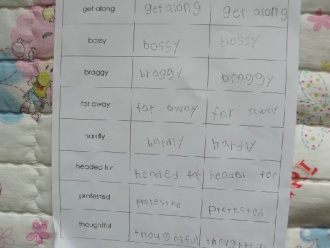 get along get along get along
bossy bossy bossy
braggy braggy braggy
far away far away far away
hardly hardly hardly
headed for headed for headed for
protested protested protested
thoughtful thoughtful